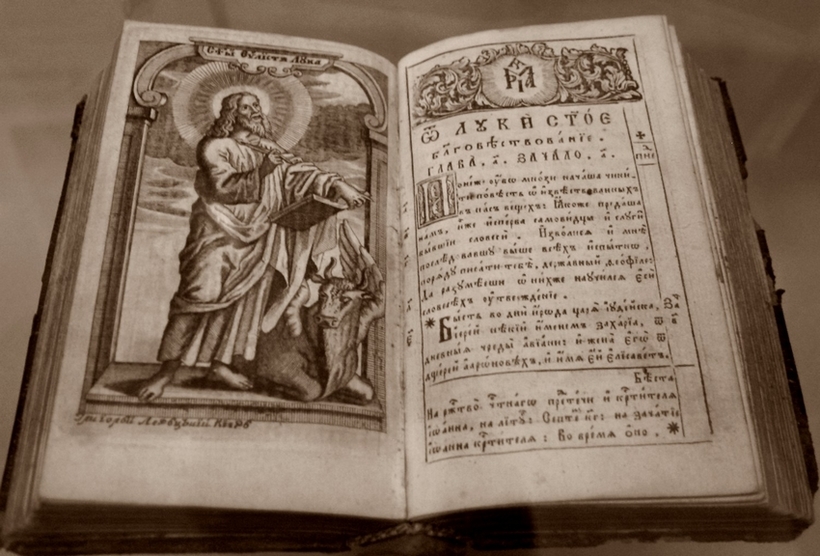 С҃тый Єѵ҃листа Лѹка
Григорий
МРІА
Ѿ ЛУКИ СТ҃ОЕ
бл҃говѣствованїе.
ГЛАВА, а҃. ЗАЧАЛО, а҃.
Понеже ѹбѡ мнози начаша чини-
ти повѣсть ѡ извѣствованныхъ
въ насъ вещехъ: Ꙗкоже предаша
намъ, иже исперва самовидцы и слуги
бывшїи словесѝ. Изволисѧ и мнѣ
послѣдовавшу выше всѣхъ испытнѡ,
порѧду писати тебѣ, державный Ѳеофїле:
Да разумѣеши ѡ нихже научилсѧ єси
словесѣхъ ѹтвержденїе.
Бысть во дни Ирѡда царѧ Іудейска,
Їерей нѣкїй именемъ Захарїа, ѿ
дневныѧ чреды Авїани: и жена єгѡ ѿ
дщерей Аарѡновѣхъ, и имѧ єй Єлисаветъ.
Бѣста
На рж҃тво чⷭ҇тнагѡ прⷣтечи и крⷭ҇тителѧ
Їѡанна, на литꙋ҃: Септе҃ кг: на зачатїе
Їѡанна крⷭ҇тителѧ: Во времѧ ѻно.